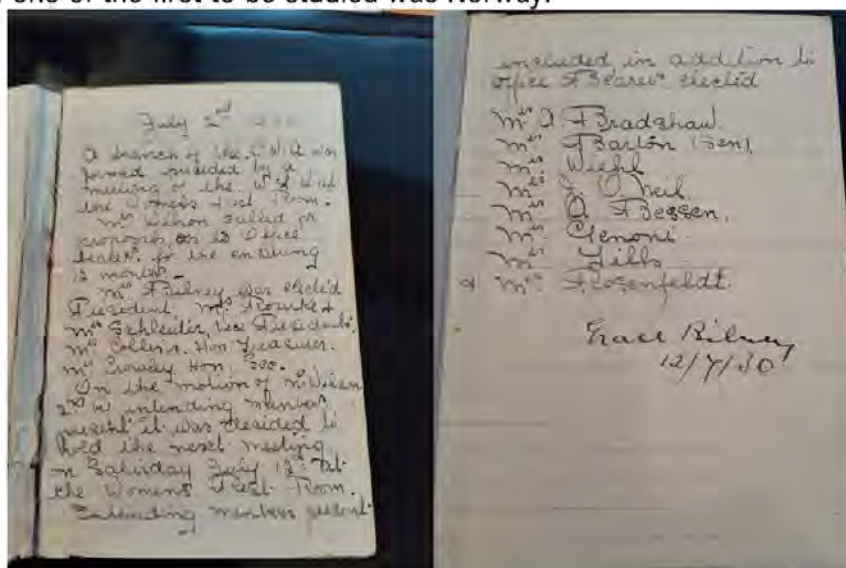 one of the first to be studied was Norway.
July 2nd
A branch of the C.W.A was
formed preceded by a
meeting of the
the Womens Rest Room.
Mrs Wilson called for
proposers as to Office
bearers for the ensuing
12 months -
Mrs Bilney was elected
President. Mrs Rourke &
Mrs Schleuter, Vice Presidents.
Mrs Collins. Hon Treasurer.
Mrs Crowley Hon. Sec.
On the motion of Mrs Wilson
2nd by intending members
present it was decided to
hold the next meeting
on Saturday July 12th at
the Womens Rest Room.
Intending members present
included in addition to
office Bearers elected
Mrs A. Bradshaw.
Mrs Barton (Sen).
Mrs Wiehl
Mrs J. O'Neil
Mrs O. Bessen.
Mrs Genoni.
Mrs
& Mrs Rosenfeldt.
Grace Bilney
12/7/30